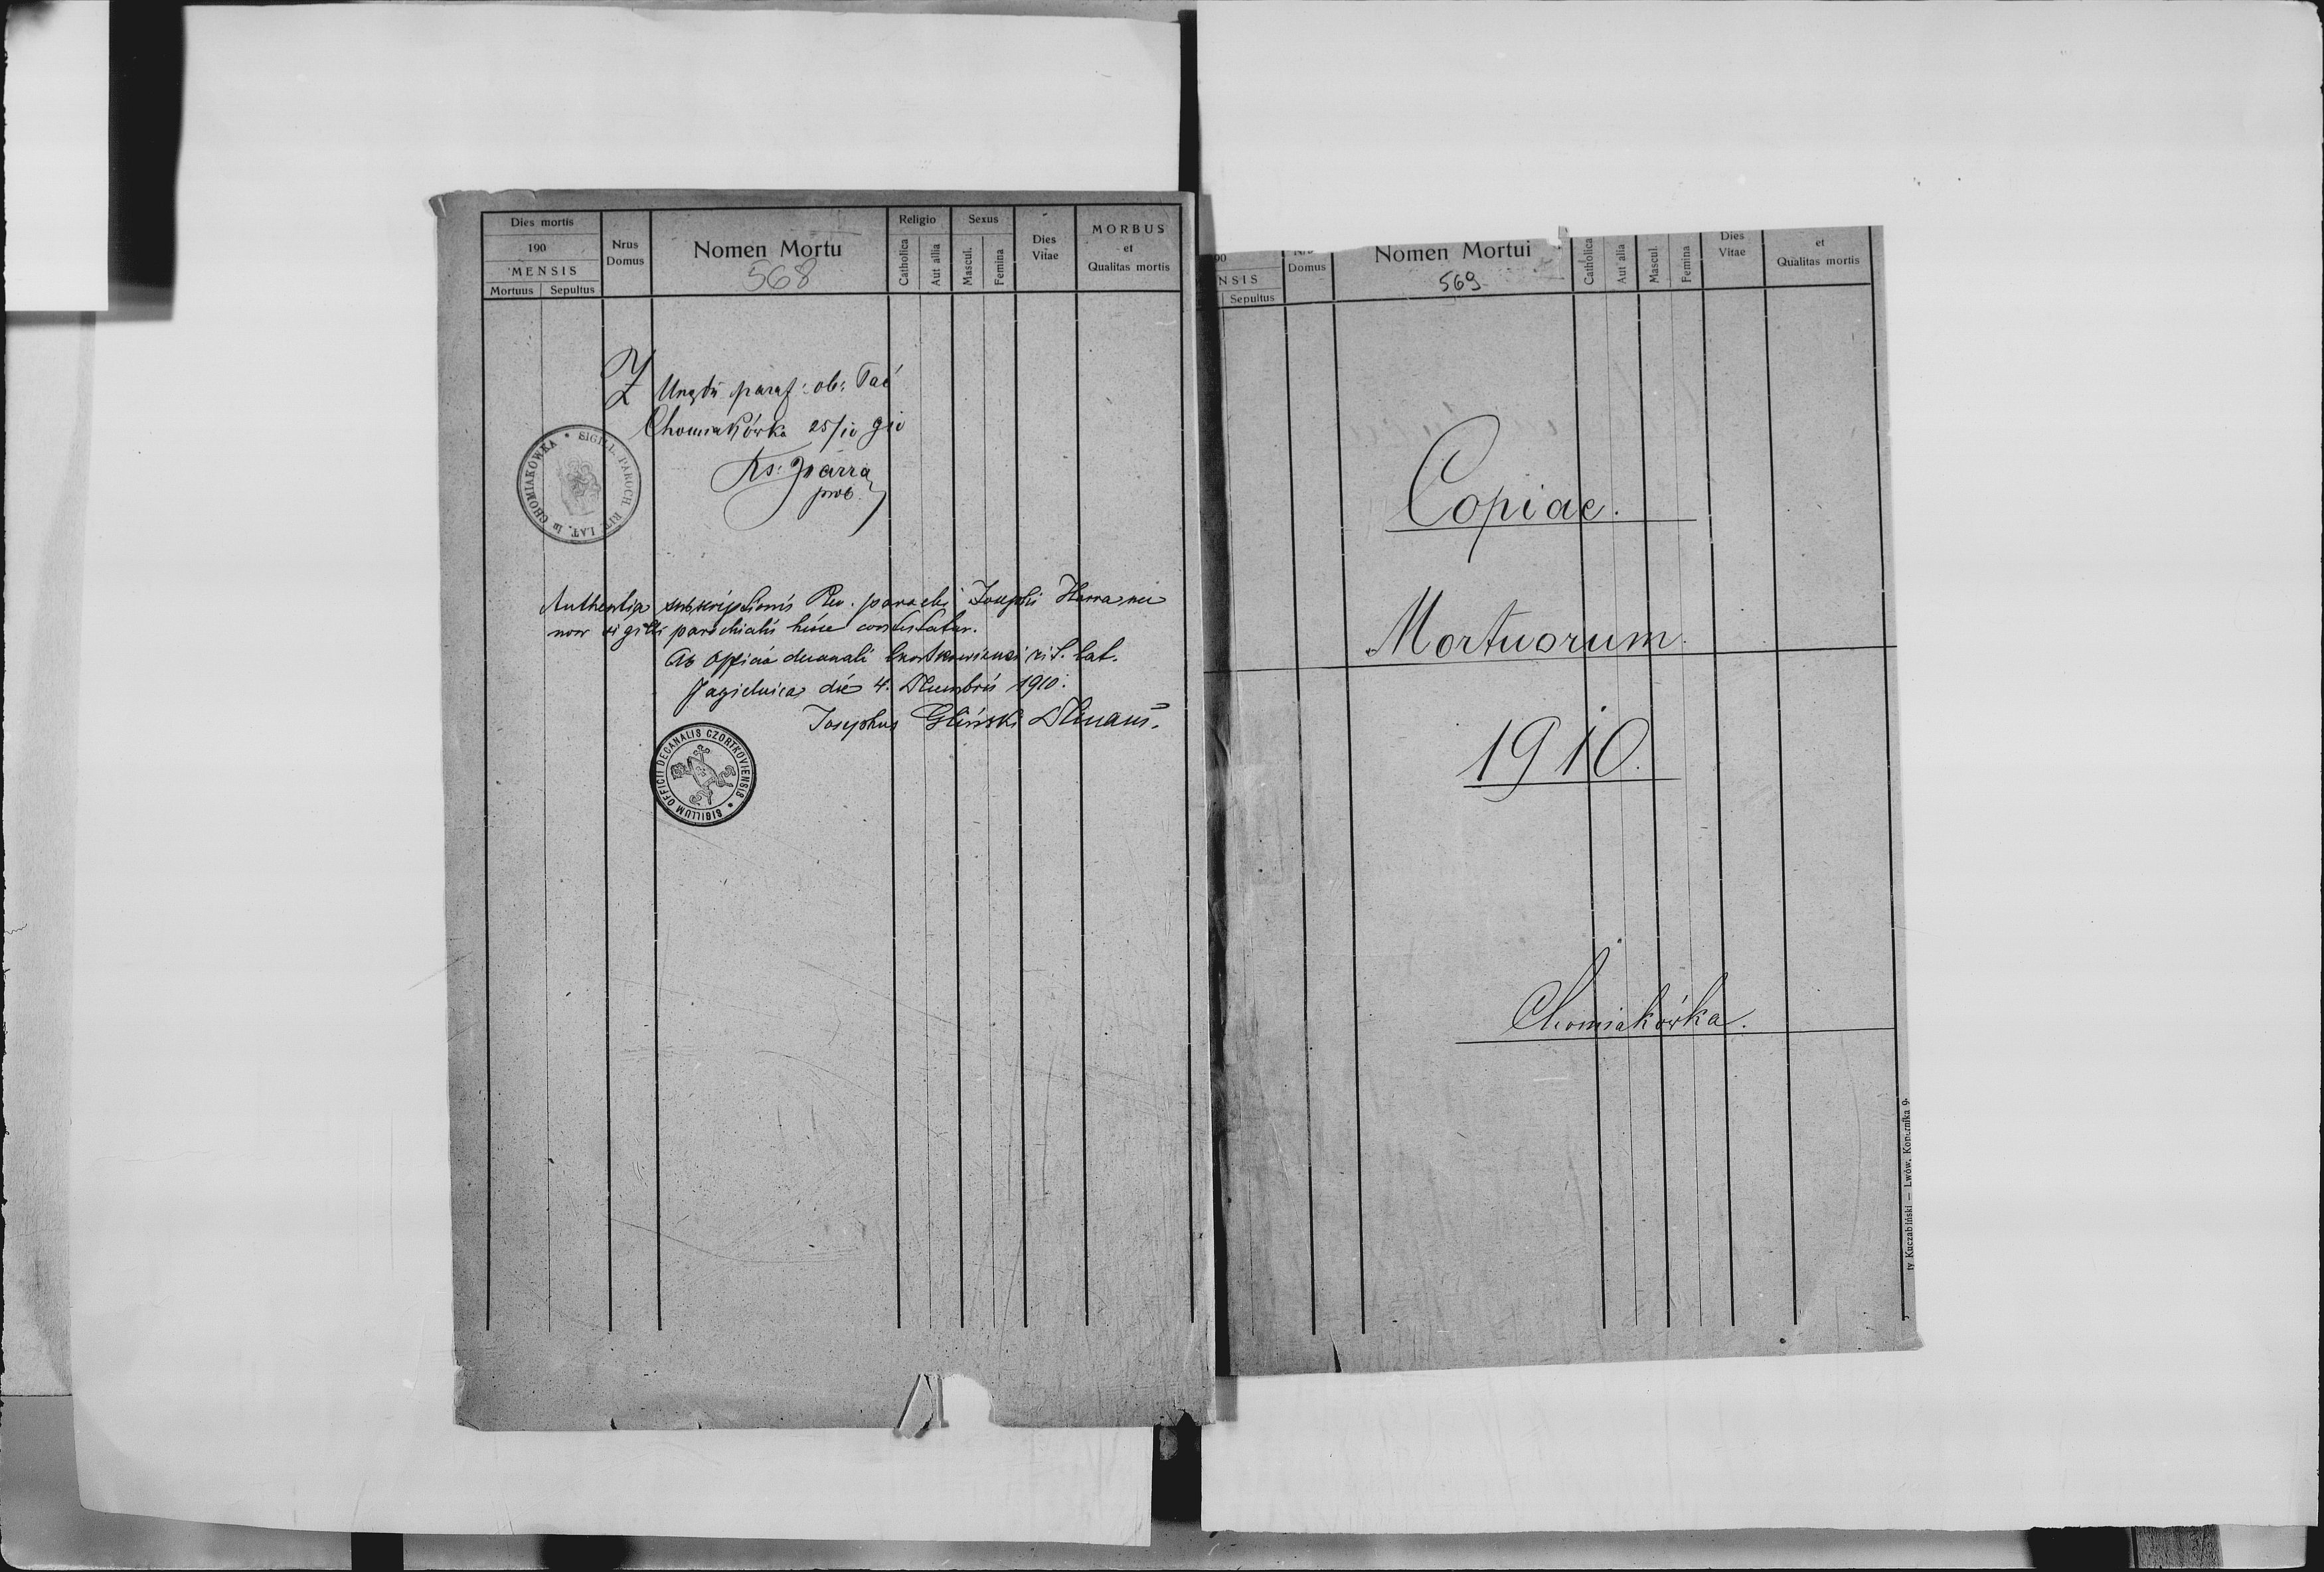 Dies mortis
190
MENSIS
Mortuus Sepultus
Nrus
Domus
Nomen Mortu
568
Religio
Catholica
Aut alia
Sexus
Mascul.
Femina
Dies
Vitae
MORBUS
et
Qualitas mortis
Z Urzędu paraf: ob: łać
Chomiakówka 25/10 910
Ks:
prob.
SIGILL. PAROCH. RIT. LAT. in CHOMIAKÓWKA
Authentia subscriptionis Rev. parochi Josephi
non sigilli parochialis hisce contestatur.
Ab Officio decanali Czortkoviensi rit. lat.
Jagielnica die 4. Decembris 1910.
Josephus Gliński Decanus.
SIGILLUM OFFICII DECANALIS CZORTKOVIENSIS
90
NSIS
Sepultus
Domus
Nomen Mortui
569
Catholica
Aut alia
Mascul.
Femina
Dies
Vitae
et
Qualitas mortis
Copiae.
Mortuorum.
1910.
Chomiakówka.
ty Kuczabiński — Lwów, Kopernika 9.